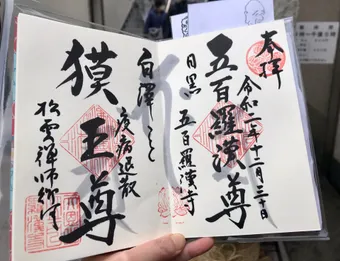 奉拝
令和二年十二月三十日
五百羅漢尊
目黒 五百羅漢寺
白澤こと
疫病退散
獏王尊
松雲禅師作